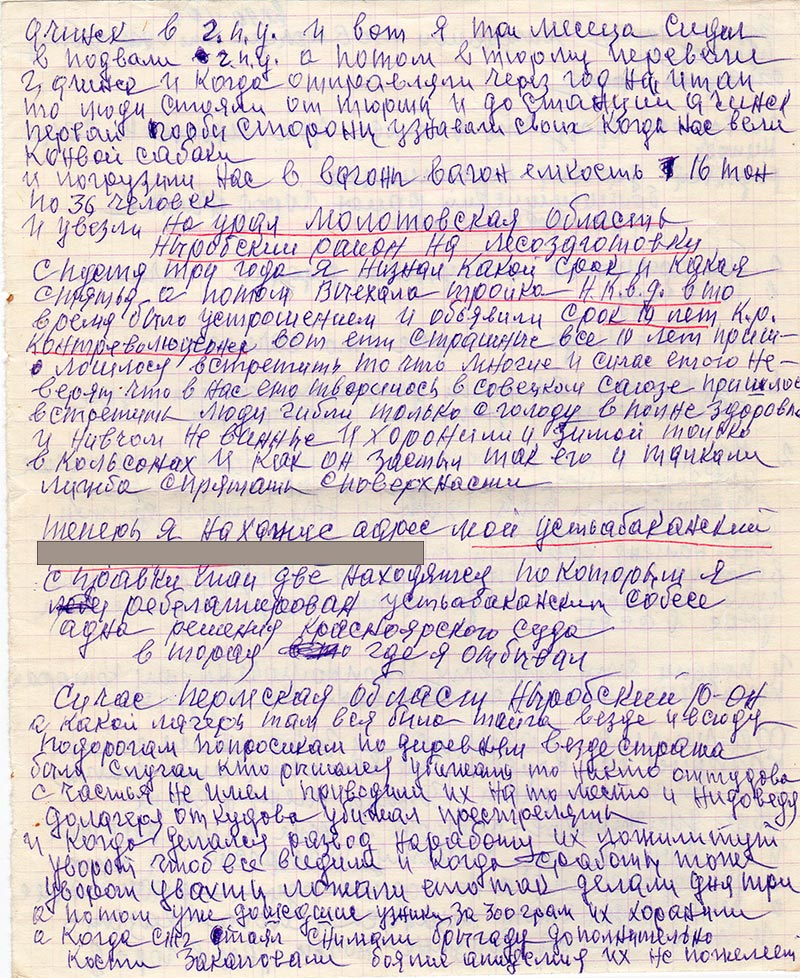 ачинск в г.п.у. и вот я три месеца сидел
в подвали г.п.у. а потом в тюрму перевели
г ачинск и когда отправляли через год на итап
то люди стояли от тюрми и до станции ачинск
первой пооби стороны узнавали своих когда нас вели
конвой сабаки
и погрузили нас в вагоны вагон емкость 16 тон
по 36 человек
и увезли на урал Молотовская область
Ныробский район на лесозаготовку
спустя три года я низнал какой срок и какая
спятья а потом виехала тройка Н.К.в.д. в то
время было устрошением и объявили срок 10 лет К.р.
контряволюцернея вот ети страшные все 10 лет приш-
лошлося встретить то что многие и сичас етого не-
верят что в нас ето творилось в совецком саюзе пришлось
встретить люди гибли только с голоду в полне здоровые
и нивчом не винные и хоронили и зимой только
в кольсонах и как он застыл так его и талкали
лижба спрятать споверхнасти
теперь я нахожус адрес мой устьабаканский
справки маи две находятся по которым я
ребелатирован устьабаканским собесе
адна решения красноярского суда
вторая где я отбывал
Сичас пермская область Ныробский р-он
а какой лагерь там вся было тайга везде и всюду
подорогам попросикам по диревням везде стража
были случаи кто ришался убижать то никто оттудова
счастья не имел приводили их на то место и нидоведя
долагеря откудова убижал престреляты
и когда делался развод наработу их ложили тут
уворот чтоб все видили и когда сработы тоже
уворот увахты лежали ето так делали дня три
а потом уже дошедшие узники за 300 грам их хоранили
а когда снег стаял снимали бригаду дополнительно
кости закаповали боялис апидемия их не пожелает